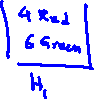 4 Red
6 Green
H1